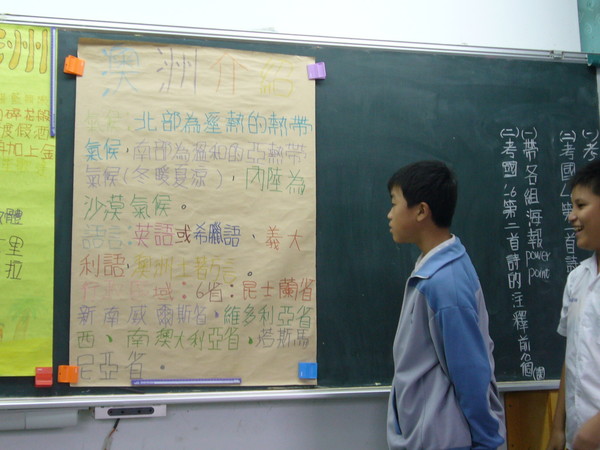 洲
渡假酒
加上金
體
里
拉
澳洲介紹
氣候:北部為溼熱的熱帶
氣候,南部為溫和的亞熱帶
氣候(冬暖夏涼),內陸為
沙漠氣候。
語言:英語或希臘語、義大
利語、澳洲土著方言。
區域:6省:昆士蘭省
新南威爾斯省、維多利亞省
西、南澳大利亞省、塔斯馬
尼亞省。
(一)
(二)考國
第二首
(一)帶各組海報power point
(二)考國L6第二首詩的注釋前8個(國)